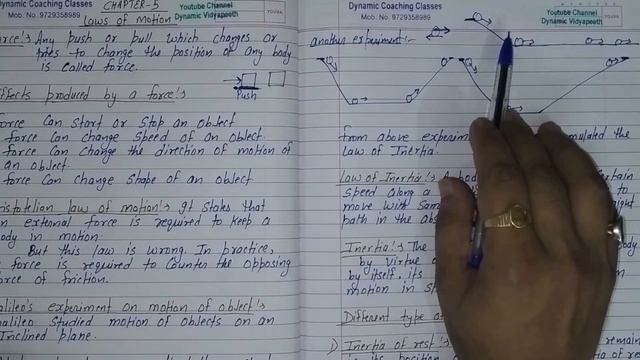 Dynamic Coaching Classes
Mob. No. 9729358989
CHAPTER-5
Laws of Motion
Youtube Channel
Dynamic Vidyapeeth
Force:- Any push or pull which changes or
tries to change the position of any body
is called force.
Push
Effects produced by a force:-
force can start or stop an object
force can change speed of an object.
force can change the direction of motion of
an object.
force can change shape of an object
Aristotelian law of motion:- It states that
an external force is required to keep a
body in motion.
But this law is wrong. In practice,
force is required to counter the opposing
force of friction.
Galileo's experiment on motion of object:-
Galileo studied motion of objects on an
Inclined plane.
Dynamic Coaching Classes
Mob. No. 9729358989
Youtube Channel
Dynamic Vidyapeeth
another experiment:-
from above experim
mulated the
Law of Inertia.
Law of Inertia:- A bod
rtain
speed along a
to
move with sam
ight
path in the abs
Inertia:- The
body
by virtue
by itself, its
motion in s
Different type o
1) Inertia of rest:-
remain
in its position
ia of re